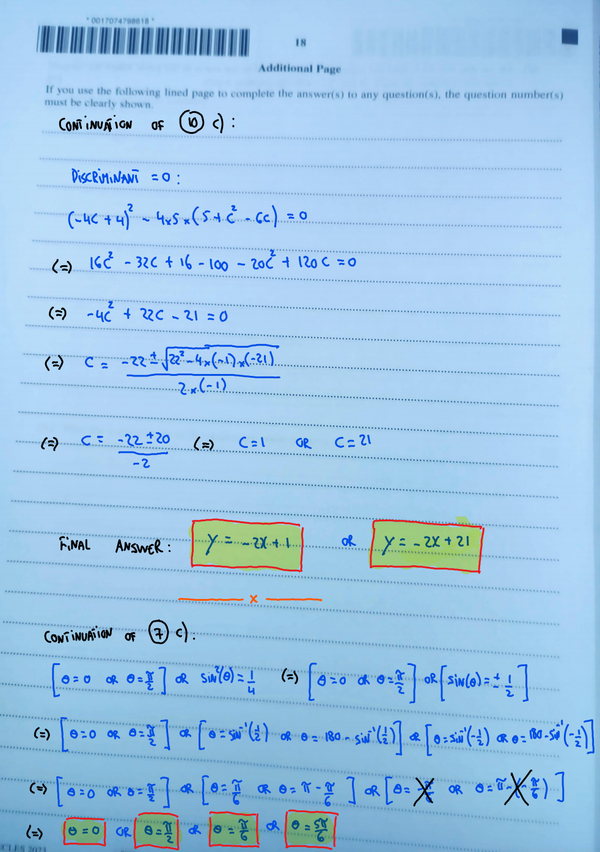 * 0017074798818 *
18
Additional Page
If you use the following lined page to complete the answer(s) to any question(s), the question number(s)
must be clearly shown.
CONTINUATION OF 10 c):
DISCRIMINANT = 0:
(-4C + 4)² - 4×5×(5 + C² - 6C) = 0
(=) 16C² - 32C + 16 - 100 - 20C² + 120C = 0
(=) -4C² + 22C - 21 = 0
(=) C = (-22 ± √(22² - 4×(-1)×(-21))) / (2×(-1))
(=) C = (-22 ± 20) / -2 (=) C = 1 OR C = 21
FINAL ANSWER: y = -2x + 1 OR y = -2x + 21
x
CONTINUATION OF 7 c):
[θ = 0 OR θ = π/2] OR sin²(θ) = 1/4 (=) [θ = 0 OR θ = π/2] OR [sin(θ) = ± 1/2]
(=) [θ = 0 OR θ = π/2] OR [θ = sin⁻¹(1/2) OR θ = 180 - sin⁻¹(1/2)] OR [θ = sin⁻¹(-1/2) OR θ = 180 - sin⁻¹(-1/2)]
(=) [θ = 0 OR θ = π/2] OR [θ = π/6 OR θ = π - π/6] OR [θ = -π/6 OR θ = π - -π/6)]
(=) θ = 0 OR θ = π/2 OR θ = π/6 OR θ = 5π/6
CLES 2023